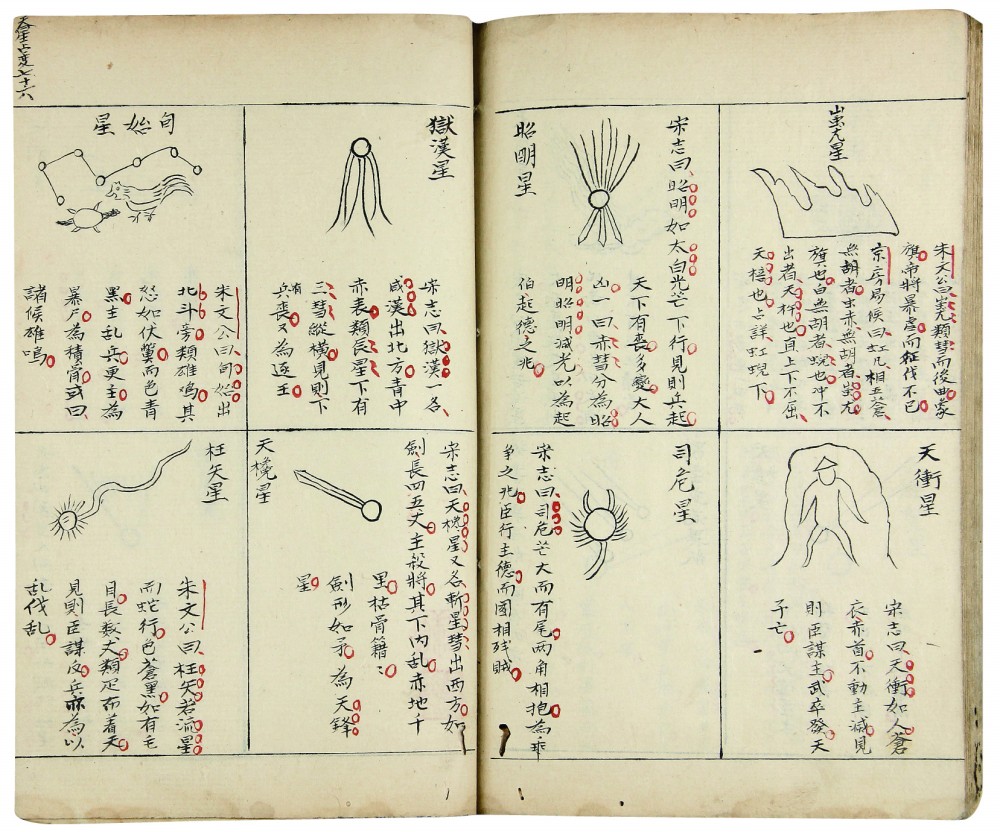 蚩尤星
朱文公曰蚩尤類彗而後曲象
旗帝將暴虐而征伐不已
京房易候曰虹凡相五蒼
無胡者虫赤無胡者蚩尤
旗也白無胡者蜺也冲不
出者天杵也直上下不屈
天棓也占詳虹蜺下
昭明星
宋志曰昭明如太白光芒下行見則兵起
天下有喪多變大人
凶一曰赤彗分為昭
明昭明滅光以為起
伯起德之兆
天衝星
宋志曰天衝如人蒼
衣赤首不動主滅見
則臣謀主武卒發天
子亡
司危星
宋志曰司危芒大而有尾兩角相抱為乖
争之兆臣行主德而國相残賊
獄漢星
宋志曰獄漢一名
咸漢出北方青中
赤表類辰星下有
三彗縱橫見則下
有兵喪又為逐王
旬始星
朱文公曰旬始出
北斗旁類雄鳴其
怒如伏鱉而色青
黑主乱兵更主為
暴尸為積骨或曰
諸候雄鳴
天欃星
宋志曰天欃星又名斬星彗出西方如
劍長四五丈主殺將其下内乱赤地千
里枯骨籍〻
劍形如矛為天鋒
星
枉矢星
朱文公曰枉矢若流星
而蛇行色蒼黑如有毛
目長数丈類疋布着天
見則臣謀反兵亦為以
乱伐乱
七十六